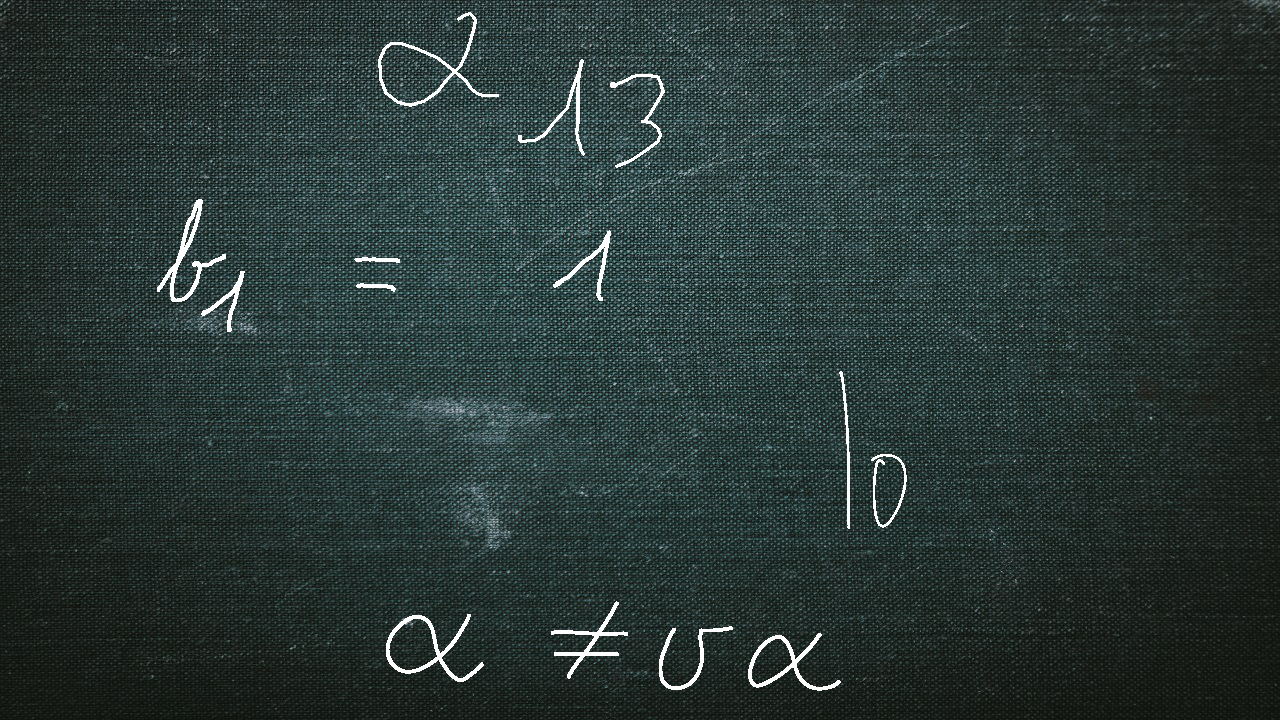 α₁₃
b₁ = 1
|₀
α ≠ υα